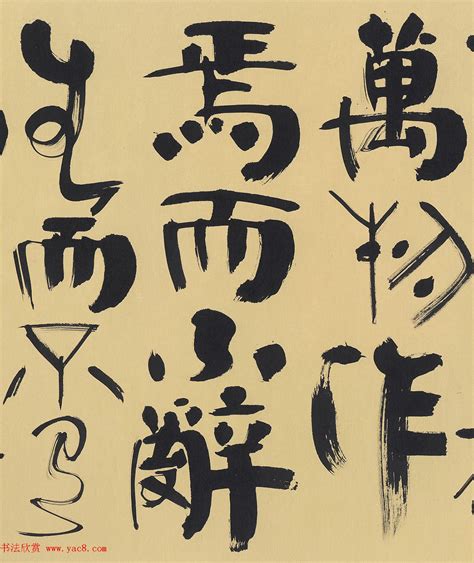 萬物作
焉而不辭
生而不有
书法欣赏 www.yac8.com